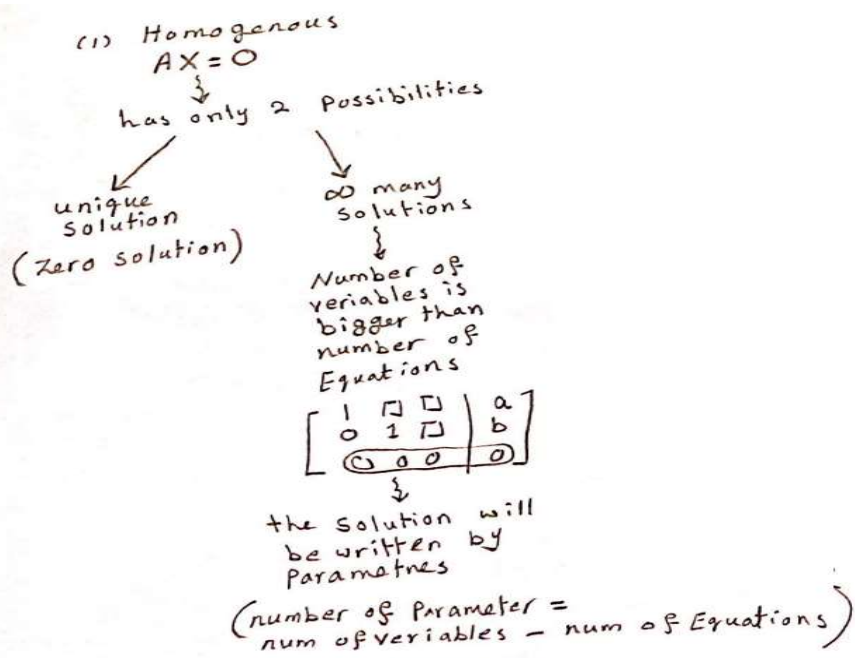 (1) Homogenous
AX = 0
has only 2 possibilities
unique
solution
(Zero solution)
∞ many
solutions
Number of
veriables is
bigger than
number of
Equations
[ 1 □ □ | a ]
[ 0 1 □ | b ]
[ 0 0 0 | 0 ]
the solution will
be written by
Parametnes
(number of Parameter =
num of veriables - num of Equations)